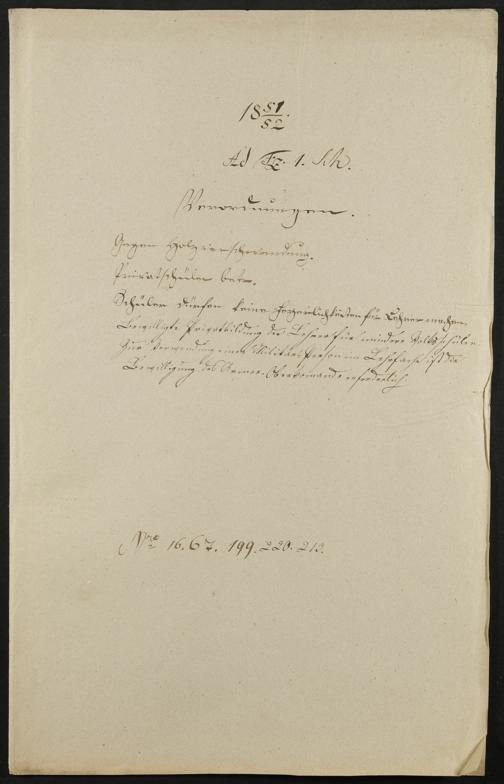 18 51/52.
Ad Fz. 1. Sch.
Verordnungen.
Gegen Holzverschwendung.
Privatschulen betr.
Schüler dürfen keine für Lehrer machen.
Bewilligte Privatbildung der Lehrer für mindere Volksschulen
Zur Verwendung einer Militär-Person im Lehrfache ist die
Bewilligung des Armee-Oberkomando erforderlich
Nro 16. 67. 199. 220. 213.